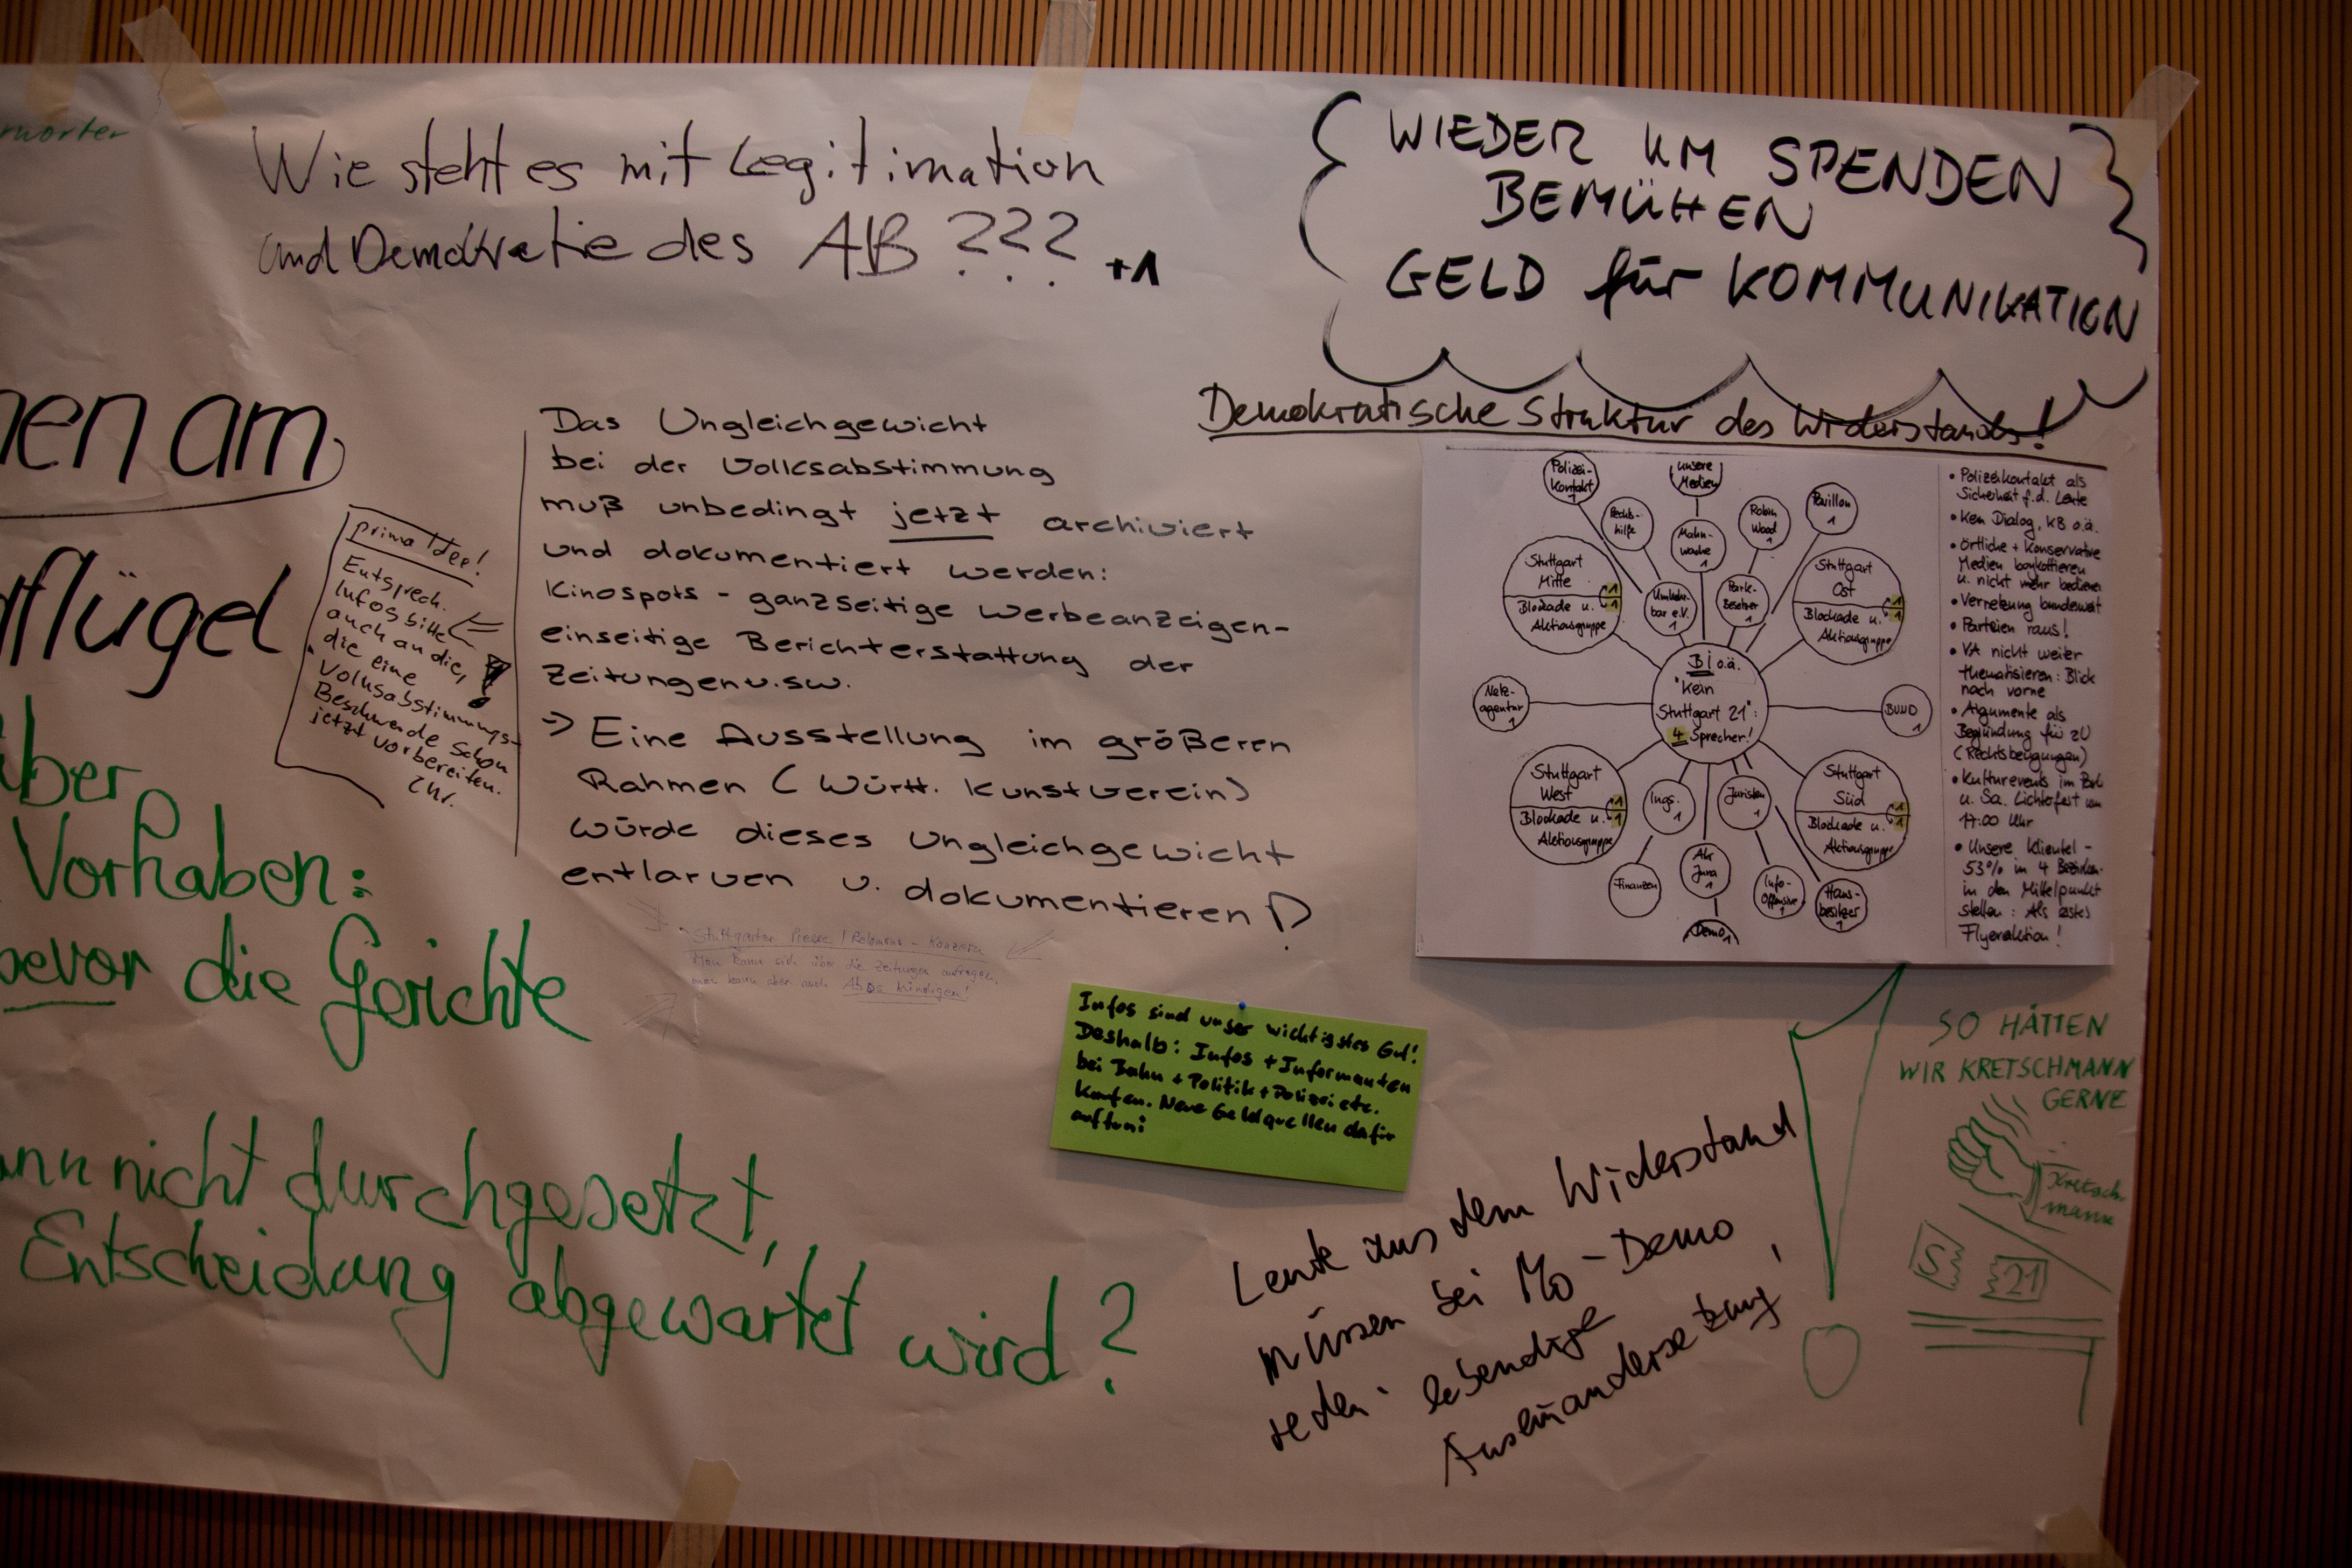 Wie steht es mit Legitimation
und Demokratie des AB ???
+1
WIEDER UM SPENDEN
BEMÜHEN
GELD für KOMMUNIKATION
Demokratische Struktur des Widerstands!
am
flügel
prima Idee!
Entsprech.
Infos bitte
auch an die,
die eine
Volksabstimmungs-
Beschwerde schon
jetzt vorbereiten.
Das Ungleichgewicht
bei der Volksabstimmung
muß unbedingt jetzt archiviert
und dokumentiert werden:
Kinospots - ganzseitige Werbeanzeigen-
einseitige Berichterstattung der
Zeitungen u.s.w.
-> Eine Ausstellung im größeren
Rahmen (Württ. Kunstverein)
würde dieses Ungleichgewicht
entlarven u. dokumentieren!
Stuttgarter Presse /
Man kann sich über die Zeitungen aufregen,
man kann aber auch Abos kündigen!
Polizei-
Kontakt
1
unsere
Medien
Rechts-
hilfe
Mahn-
wache
1
Robin
Wood
1
Pavillon
1
Stuttgart
Mitte
1
1
Blockade u.
Aktionsgruppe
bar e.V.
1
Park-
Besetzer
1
Stuttgart
Ost
1
1
Blockade u.
Aktionsgruppe
Netz-
agentur
1
BI o.ä.
"Kein
Stuttgart 21":
4 Sprecher!
BUND
1
Stuttgart
West
1
1
Blockade u.
Aktionsgruppe
Ings.
1
Juristen
1
Stuttgart
Süd
1
1
Blockade u.
Aktionsgruppe
Finanzen
AK
Jura
1
Info-
Offensive
1
Haus-
besitzer
1
Demo
1
• Polizeikontakt als
Sicherheit f.d. Leute
• Kein Dialog, KB o.ä.
• örtliche + Konservative
Medien boykottieren
u. nicht mehr bedienen
• Vernetzung bundesweit
• Parteien raus!
• VA nicht weiter
thematisieren: Blick
nach vorne
• Argumente als
Begründung für ZU
(Rechtsbeugungen)
• Kulturevents im
u. Sa. Lichterfest um
17:00 Uhr
• Unsere Klientel -
53% in 4 Bezirken
in den Mittelpunkt
stellen: Als erstes
Flyeraktion!
über
Vorhaben:
bevor die Gerichte
nicht durchgesetzt,
Entscheidung abgewartet wird?
Infos sind unser wichtigstes Gut!
Deshalb: Infos + Informanten
bei Bahn + Politik + Polizei etc.
kaufen. Neue Geldquellen dafür
auftun!
Leute aus dem Widerstand
müssen bei Mo-Demo
reden: lebendige
Auseinandersetzung!
SO HÄTTEN
WIR KRETSCHMANN
GERNE
Kretsch-
mann
S
21